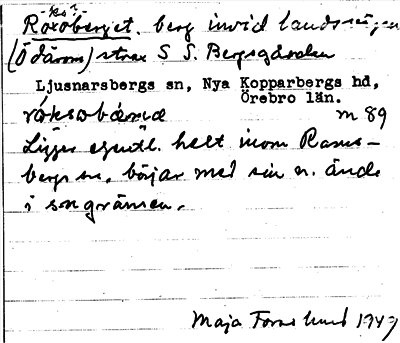 kö?
Röxöberget. berg invid landsvägen
(Ö därom) strax S S. Bergsgården
Ljusnarsbergs sn, Nya Kopparbergs hd,
Örebro län.
röksobärjä m 89
Ligger egentl. helt inom Rams-
bergs sn, börjar med sin n. ände
i sngränsen.
Maja Forslund 1949